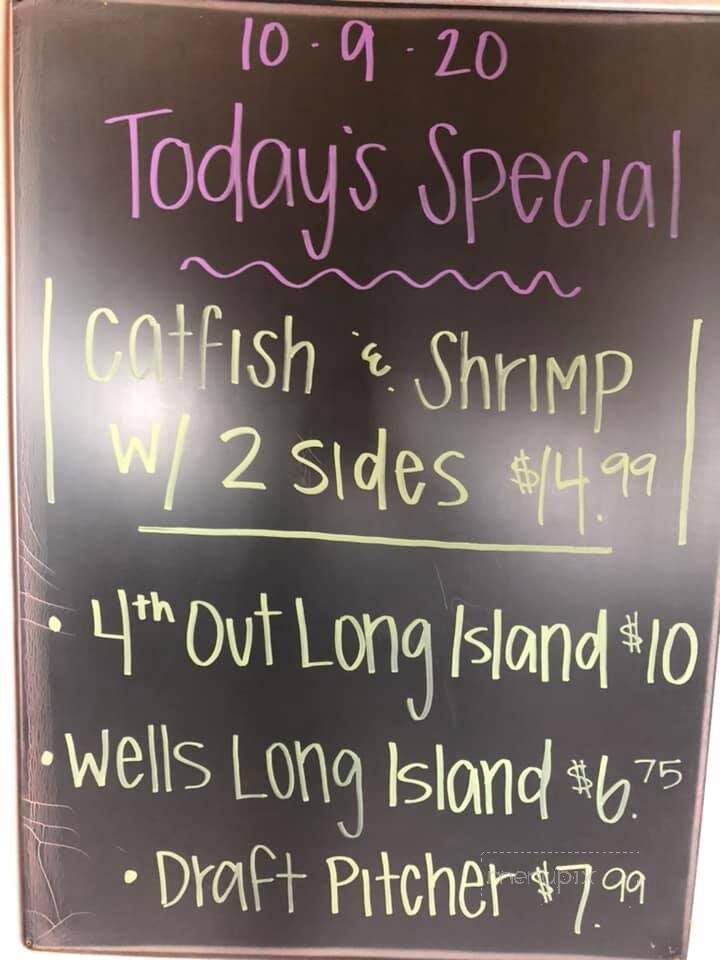 10-9-20
Today's Special
Catfish & Shrimp
W/ 2 sides $14.99
• 4th Out Long Island $10
• Wells Long Island $6.75
• Draft Pitcher $7.99